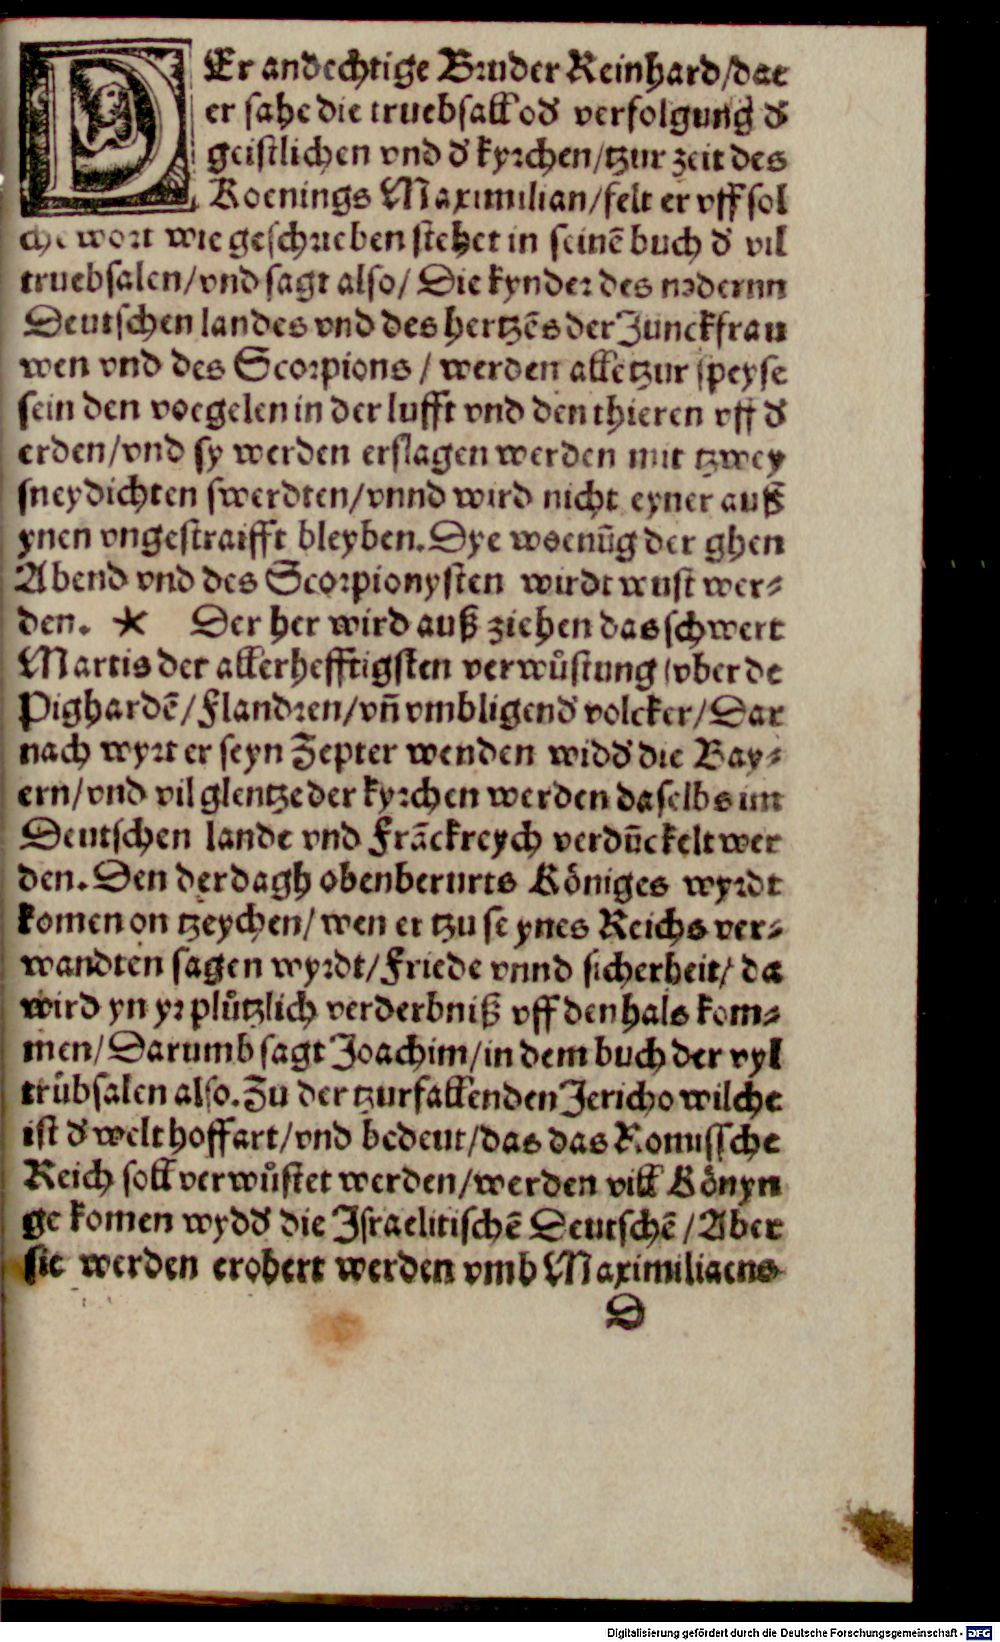 DEr andechtige Bruder Reinhard/dae
er sahe die truebsall od̕ verfolgung d̕
geistlichen vnd d̕ kyrchen/tzur zeit des
Koenings Maximilian/felt er vff sol
che wort wie geschrieben stehet in seinē buch d̕ vil
truebsalen/vnd sagt also/ Die kynder des nedernn
Deutschen landes vnd des hertzēs der Junckfrau
wen vnd des Scorpions / werden alle tzur speyse
sein den voegelen in der lufft vnd den thieren vff d̕
erden/vnd sy werden erslagen werden mit tzwey
sneydichten swerdten/vnnd wird nicht eyner auß
ynen vngestraifft bleyben. Dye woenūg der ghen
Abend vnd des Scorpionysten wirdt wust wer⸗
den. * Der her wird auß ziehen das schwert
Martis der allerhefftigsten verwůstung/vber de
Pighardē/Flandren/vñ vmbligend̕ volcker/Dar
nach wyrt er seyn Zepter wenden widd̕ die Bay⸗
ern/vnd vil glentze der kyrchen werden daselbs im
Deutschen lande vnd Frāckreych verdūckelt wer
den. Den der dagh obenberurts Königes wyrdt
komen on tzeychen/wen er tzu se ynes Reichs ver⸗
wandten sagen wyrdt/Friede vnnd sicherheit/ da
wird yn yr plůtzlich verderbniß vff den hals kom⸗
men/Darumb sagt Joachim/in dem buch der vyl
trůbsalen also. Zu der tzurfallenden Jericho wilche
ist d̕ welt hoffart/vnd bedeut/das das Romissche
Reich soll verwůstet werden/werden vill Könyn
ge komen wydd̕ die Jsraelitischē Deutschē/Aber
sie werden erobert werden vmb Maximiliaens
D
Digitalisierung gefördert durch die Deutsche Forschungsgemeinschaft - DFG